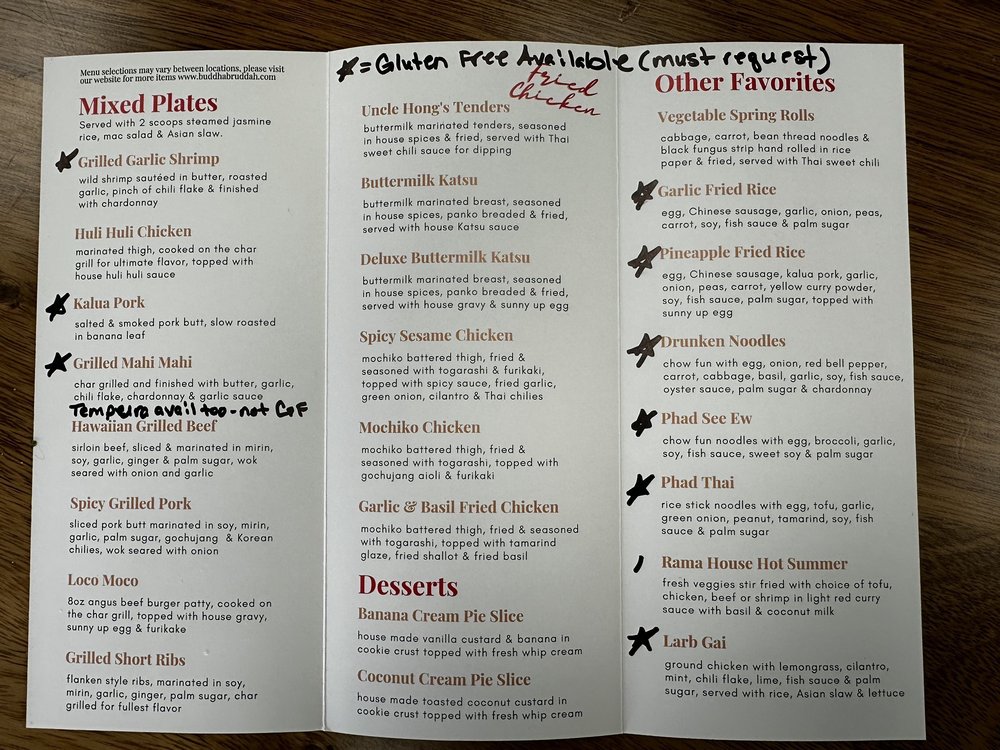 ★ = Gluten Free Available (must request)
Menu selections may vary between locations, please visit
our website for more items www.buddhabruddah.com
Mixed Plates
Served with 2 scoops steamed jasmine
rice, mac salad & Asian slaw.
★ Grilled Garlic Shrimp
wild shrimp sautéed in butter, roasted
garlic, pinch of chili flake & finished
with chardonnay
Huli Huli Chicken
marinated thigh, cooked on the char
grill for ultimate flavor, topped with
house huli huli sauce
★ Kalua Pork
salted & smoked pork butt, slow roasted
in banana leaf
★ Grilled Mahi Mahi
char grilled and finished with butter, garlic,
chili flake, chardonnay & garlic sauce
Tempura avail too - not GF
Hawaiian Grilled Beef
sirloin beef, sliced & marinated in mirin,
soy, garlic, ginger & palm sugar, wok
seared with onion and garlic
Spicy Grilled Pork
sliced pork butt marinated in soy, mirin,
garlic, palm sugar, gochujang & Korean
chilies, wok seared with onion
Loco Moco
8oz angus beef burger patty, cooked on
the char grill, topped with house gravy,
sunny up egg & furikake
Grilled Short Ribs
flanken style ribs, marinated in soy,
mirin, garlic, ginger, palm sugar, char
grilled for fullest flavor
Fried
Chicken
Uncle Hong's Tenders
buttermilk marinated tenders, seasoned
in house spices & fried, served with Thai
sweet chili sauce for dipping
Buttermilk Katsu
buttermilk marinated breast, seasoned
in house spices, panko breaded & fried,
served with house Katsu sauce
Deluxe Buttermilk Katsu
buttermilk marinated breast, seasoned
in house spices, panko breaded & fried,
served with house gravy & sunny up egg
Spicy Sesame Chicken
mochiko battered thigh, fried &
seasoned with togarashi & furikaki,
topped with spicy sauce, fried garlic,
green onion, cilantro & Thai chilies
Mochiko Chicken
mochiko battered thigh, fried &
seasoned with togarashi, topped with
gochujang aioli & furikaki
Garlic & Basil Fried Chicken
mochiko battered thigh, fried & seasoned
with togarashi, topped with tamarind
glaze, fried shallot & fried basil
Desserts
Banana Cream Pie Slice
house made vanilla custard & banana in
cookie crust topped with fresh whip cream
Coconut Cream Pie Slice
house made toasted coconut custard in
cookie crust topped with fresh whip cream
Other Favorites
Vegetable Spring Rolls
cabbage, carrot, bean thread noodles &
black fungus strip hand rolled in rice
paper & fried, served with Thai sweet chili
★ Garlic Fried Rice
egg, Chinese sausage, garlic, onion, peas,
carrot, soy, fish sauce & palm sugar
★ Pineapple Fried Rice
egg, Chinese sausage, kalua pork, garlic,
onion, peas, carrot, yellow curry powder,
soy, fish sauce, palm sugar, topped with
sunny up egg
★ Drunken Noodles
chow fun with egg, onion, red bell pepper,
carrot, cabbage, basil, garlic, soy, fish sauce,
oyster sauce, palm sugar & chardonnay
★ Phad See Ew
chow fun noodles with egg, broccoli, garlic,
soy, fish sauce, sweet soy & palm sugar
★ Phad Thai
rice stick noodles with egg, tofu, garlic,
green onion, peanut, tamarind, soy, fish
sauce & palm sugar
Rama House Hot Summer
fresh veggies stir fried with choice of tofu,
chicken, beef or shrimp in light red curry
sauce with basil & coconut milk
★ Larb Gai
ground chicken with lemongrass, cilantro,
mint, chili flake, lime, fish sauce & palm
sugar, served with rice, Asian slaw & lettuce